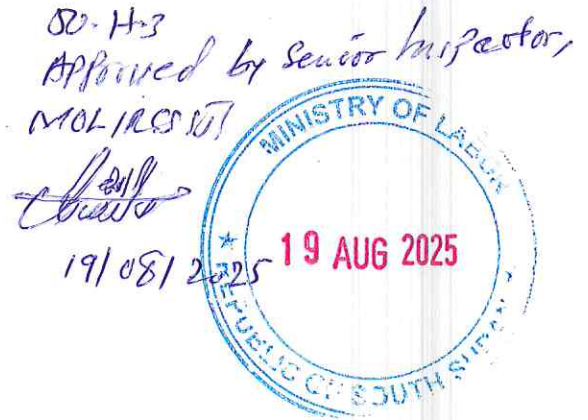 Approved by Senior Inspector,
19/08/2025
MINISTRY OF LABOR
19 AUG 2025
REPUBLIC OF SOUTH SUDAN